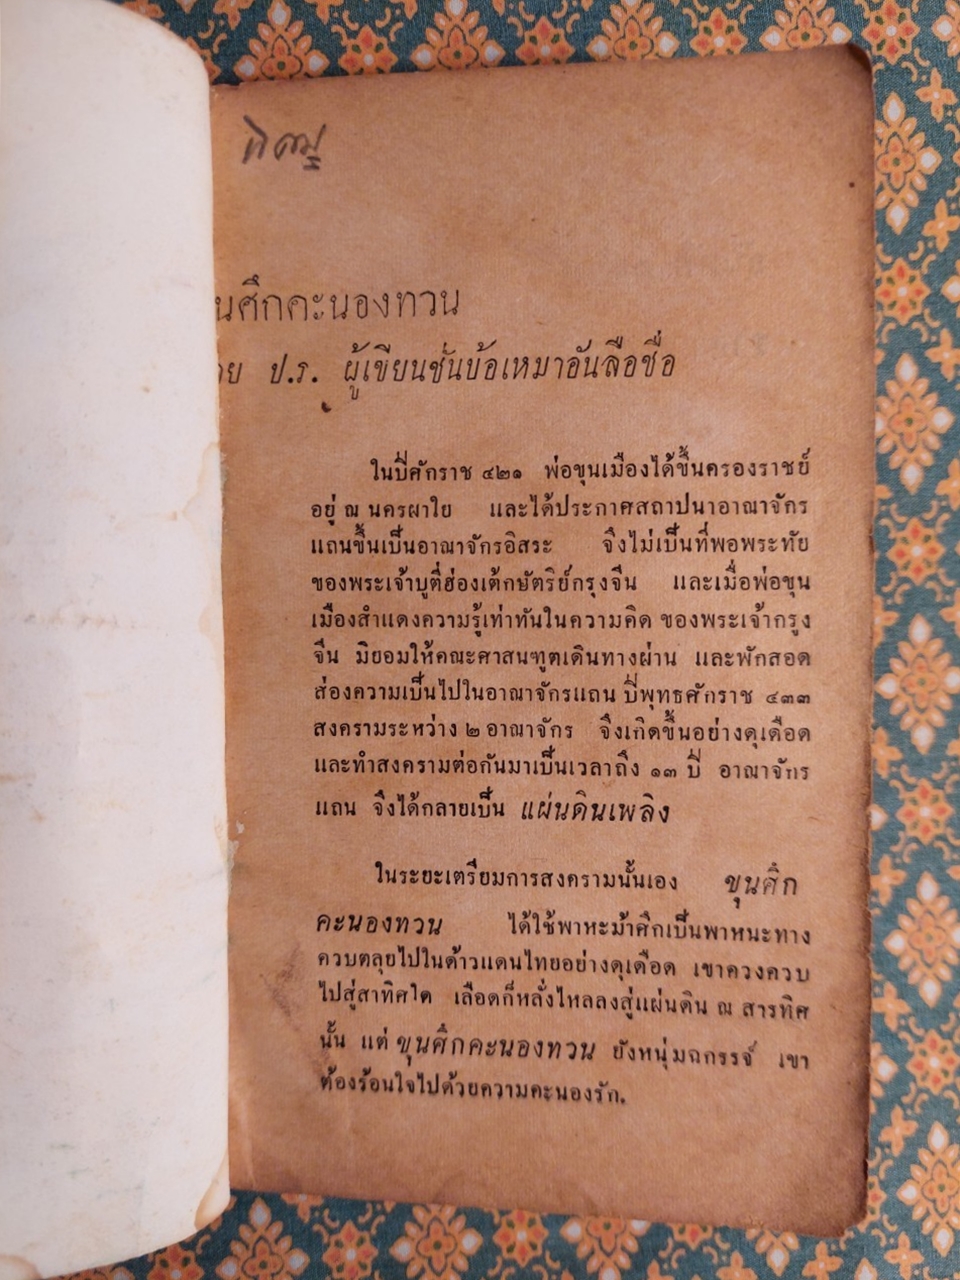 นศึกคะนองทวน
ย ป.ร. ผู้เขียนชั่นบ้อเหมาอันลือชื่อ
ในปีศักราช ๔๒๑ พ่อขุนเมืองได้ขึ้นครองราชย์
อยู่ ณ นครผาใย และได้ประกาศสถาปนาอาณาจักร
แถนขึ้นเป็นอาณาจักรอิสระ จึงไม่เป็นที่พอพระทัย
ของพระเจ้าบูตี่ฮ่องเต้กษัตริย์กรุงจีน และเมื่อพ่อขุน
เมืองสำแดงความรู้เท่าทันในความคิด ของพระเจ้ากรุง
จีน มิยอมให้คณะศาสนฑูตเดินทางผ่าน และพักสอด
ส่องความเป็นไปในอาณาจักรแถน ปีพุทธศักราช ๔๓๓
สงครามระหว่าง ๒ อาณาจักร จึงเกิดขึ้นอย่างดุเดือด
และทำสงครามต่อกันมาเป็นเวลาถึง ๑๓ ปี อาณาจักร
แถน จึงได้กลายเป็น แผ่นดินเพลิง
ในระยะเตรียมการสงครามนั้นเอง ขุนศึก
คะนองทวน ได้ใช้พาหะม้าศึกเป็นพาหนะทาง
ควบตลุยไปในด้าวแดนไทยอย่างดุเดือด เขาควงควบ
ไปสู่สาทิศใด เลือดก็หลั่งไหลลงสู่แผ่นดิน ณ สารทิศ
นั้น แต่ ขุนศึกคะนองทวน ยังหนุ่มฉกรรจ์ เขา
ต้องร้อนใจไปด้วยความคะนองรัก.